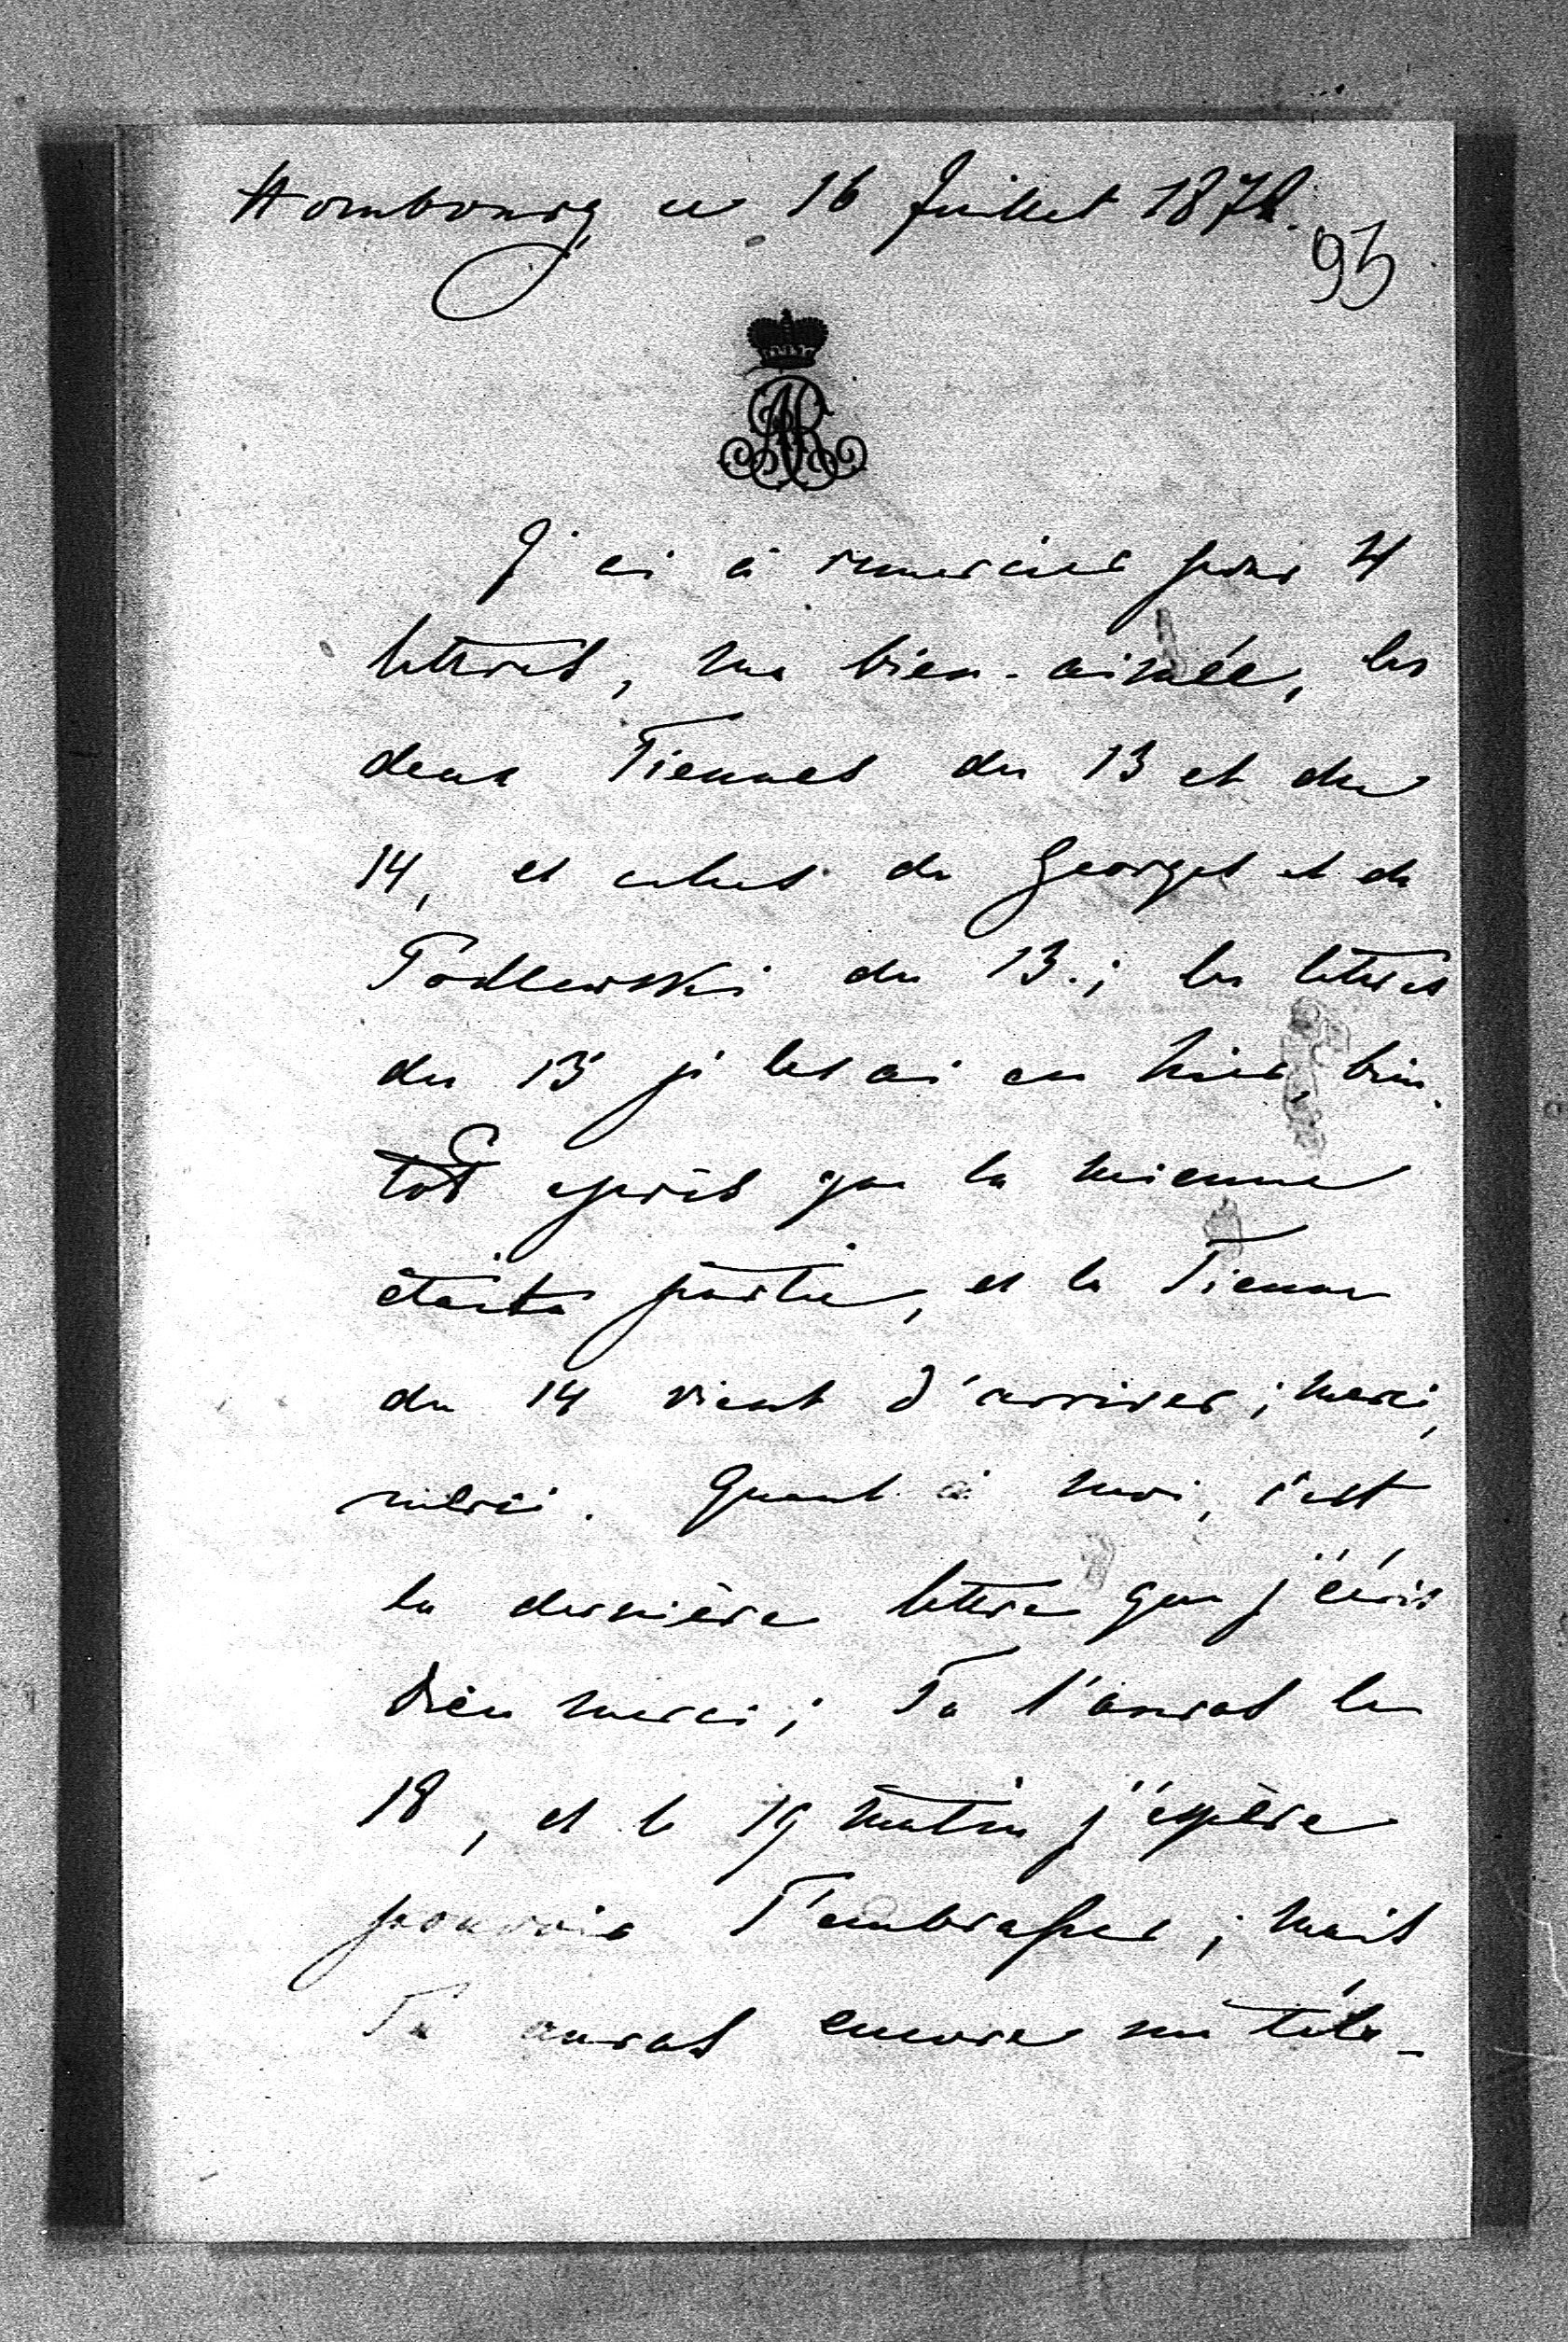 Hombourg ce 16 Juillet 1872.
95
AR
J'ai à remercier pour 4
lettres, ma bien-aimée, les
deux Tiennes du 13 et du
14, et celles de Georges et de
Podlewski du 13.; les lettres
du 13 je les ai eu hier, bien
tôt après que la mienne
était partie, et la Tienne
du 14 vient d'arriver; merci,
merci. Quant à moi, c'est
la dernière lettre que j'écris
Dieu merci; Tu l'auras le
18, et le 19 matin j'espère
pouvoir T'embrasser; mais
Tu auras encore un télé-